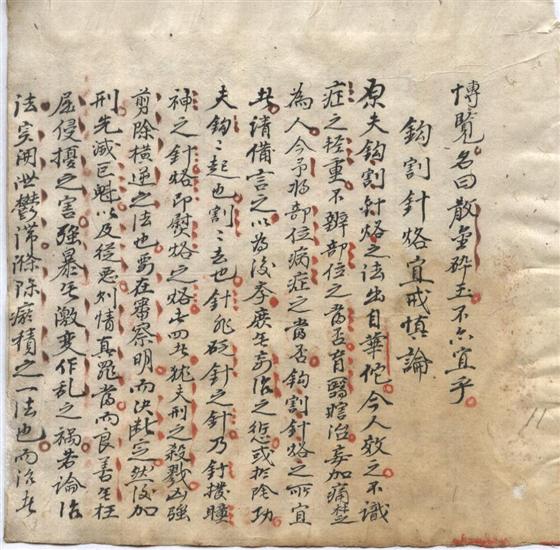 博覽名曰散金碎玉不亦宜乎
鈎割針烙宜戒慎論
原夫鈎割針烙之法出自華佗今人效之不識
症之輕重不辨部位之當否盲醫瞎治妄加痛楚
為人今予將部位病症之當否鈎割針烙之所宜
此請備言之以為後學庶无妄治之愆或於陰功
夫鈎〻起也割〻去也針非砭針之針乃針撥瞳
神之針烙即熨烙之烙此四者猶夫刑之殺戮凶強
剪除橫逆之法也要在審察明而決斷定然後加
刑先滅巨魁以及從惡則情真罪當而良善无枉
屈侵擾之害強暴无激變作乱之禍若論治
法实開泄鬱滯滌除瘀積之一法也而治者